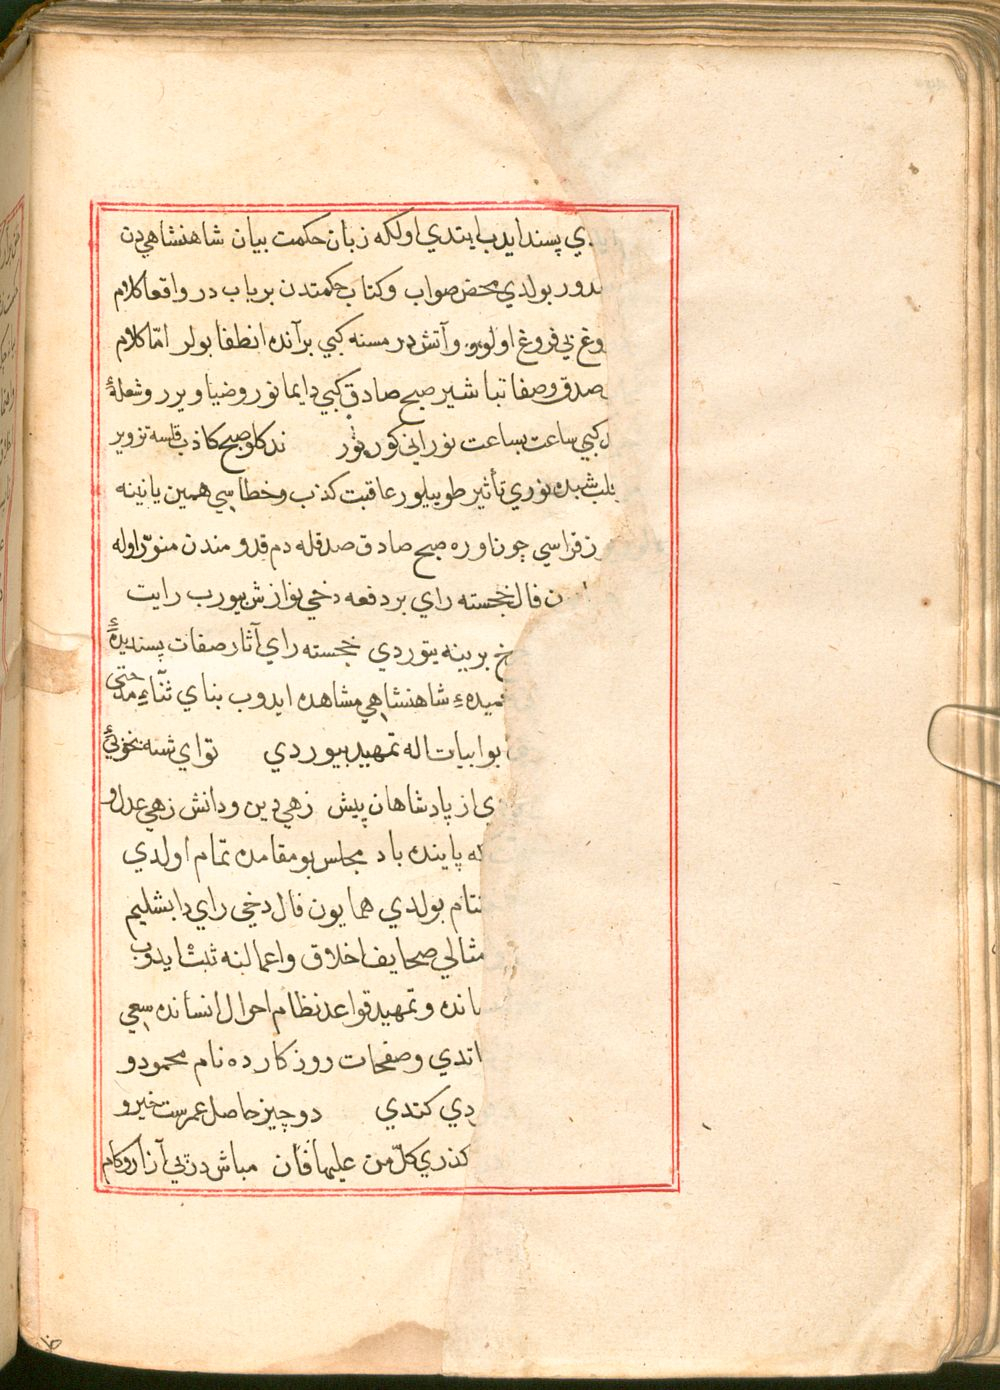 دي پسند ايدب ايتدي اولكه زبان حكمت بيان شاهنشاهي دن
بولدي محض صواب وكتاب حكمتدن بر باب در واقعا كلام
بي فروغ اولور وآتش در مسنه كبي بر آنده انطفا بولر امّا كلام
صدق وصفا تباشير صبح صادق كبي دايما نور وضيا ويرر وشعلهٔ
كبي ساعت بساعت نوراني كورينور ندكلو صبح كاذب قلسه تزوير
نوري تأثير طويبلور عاقبت كذب وخطاسي همين يانينه
فراسي چون اوره صبح صادق صدقله دم قدومندن منوّر اوله
ن فال خجسته راي بر دفعه دخي نوازش بيورب رايت
برينه يتوردي خجسته راي آثار صفات پسنديدهٔ
شاهنشاهي مشاهده ايدوب بناي ثناء مدحتى
بو ابيات اله تمهيد بيوردي تو اي شه بخوبئ
ي از پادشاهان پيش زهي دين ودانش زهي عدل و
كه پاينده باد مجلس بو مقامده تمام اولدي
بولدي همايون فال دخي راي دابشليم
مثالي صحايف اخلاق واعمالنه ثبت ايدوب
وتمهيد قواعد نظام احوال انسانده سعي
اتدي وصفحات روزكارده نام محمود و
دي كتدي دو چيز حاصل عمرست خير و
كذري كلّ من عليها فان مباش در پي آزار وكام